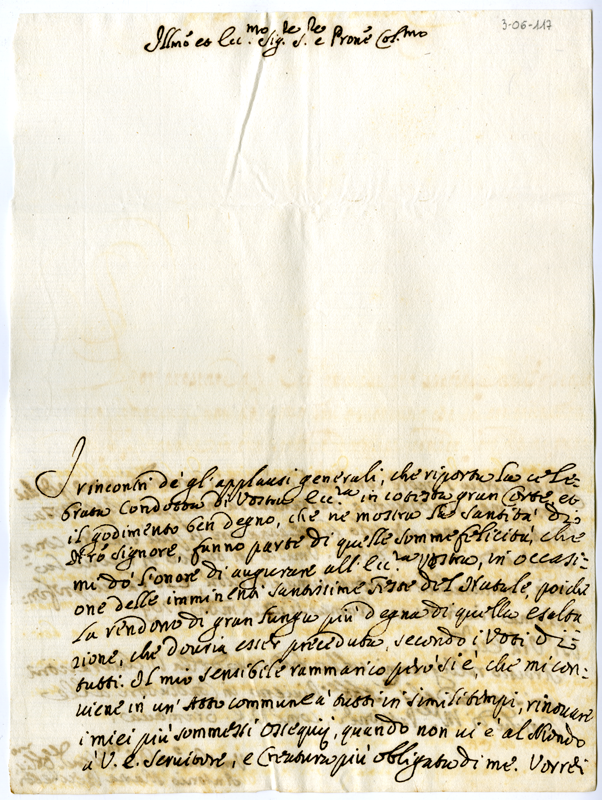 3-06-117
Illmo et Ecc.mo Sig.re S.re e Prone Col.mo
I rincontri de gl'applausi generali, che riporta la cele-
brata Condotta di Vostra Ecc.za in cotesta gran Corte, et
il godimento ben degno, che ne mostra la Santità di
Nro Signore, fanno parte di quelle somme felicità, che
mi dò l'onore di augurare all'Ecc.za Vostra, in occasi-
one delle imminenti Santissime Feste del Natale, poiche
la rendono di gran lunga più degna di quella esalta
zione, che douria esser preceduta, secondo i Voti di
tutti. Il mio sensibile rammarico però si è, che mi con-
viene in un'Atto commune à tutti in simili tempi, rinouare
i miei più sommessi Ossequij, quando non ui è al Mondo
à V. E. Seruitore, e Creatura più obligata di me. Vorrei